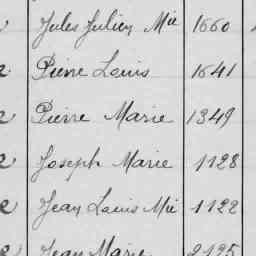 Jules Julien Mie 1660
e Pierre Louis 1641
e Pierre Marie 1349
e Joseph Marie 1128
e Jean Louis Mie 1122
e Jean Marie 2125